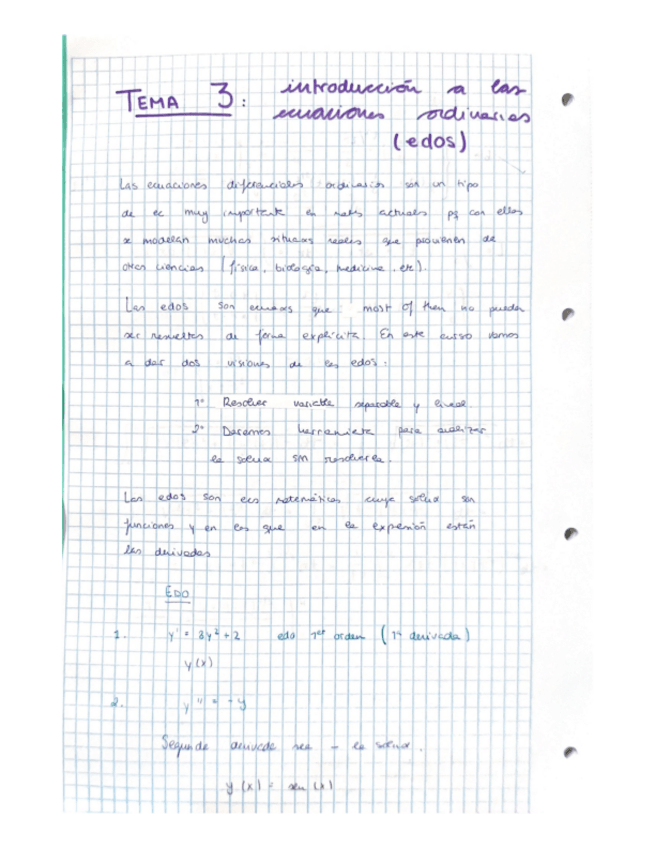 TEMA 3: introducción a las
ecuaciones ordinarias
(edos)
Las ecuaciones diferenciales ordinarias son un tipo
de ec muy importante en mates actuales pq con ellas
se modelan muchas situaxs reales que provienen de
otras ciencias (física, biología, medicina, etc).
Las edos son ecuaxs que most of them no pueden
ser resueltas de forma explícita. En este curso vamos
a dar dos visiones de las edos.
1º Resolver variable separable y lineal.
2º Daremos herramienta para analizar
la soluα sin resolverla.
Las edos son ecs matemáticas cuya soluα son
funciones y en las que en la expresión están
las derivadas
EDO
1. y' = 3y² + 2 edo 1er orden (1ª derivada)
y(x)
2. y'' = -y
Segunda derivada sea - la soluα.
y(x) = sen(x)